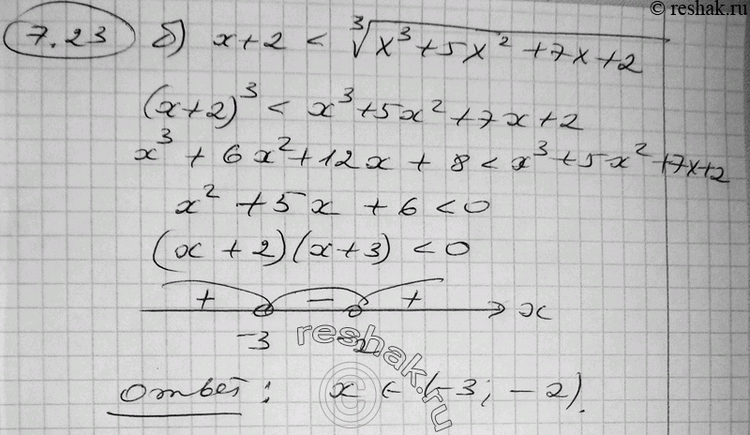 © reshak.ru
7.23 б) x+2 < ∛(x³+5x²+7x+2)
(x+2)³ < x³+5x²+7x+2
x³ + 6x²+12x + 8 < x³+5x²+7x+2
x² + 5x + 6 < 0
(x + 2)(x+3) < 0
+ − + x
-3 -2
reshak.ru
©
Ответ: x ∈ (-3; -2).